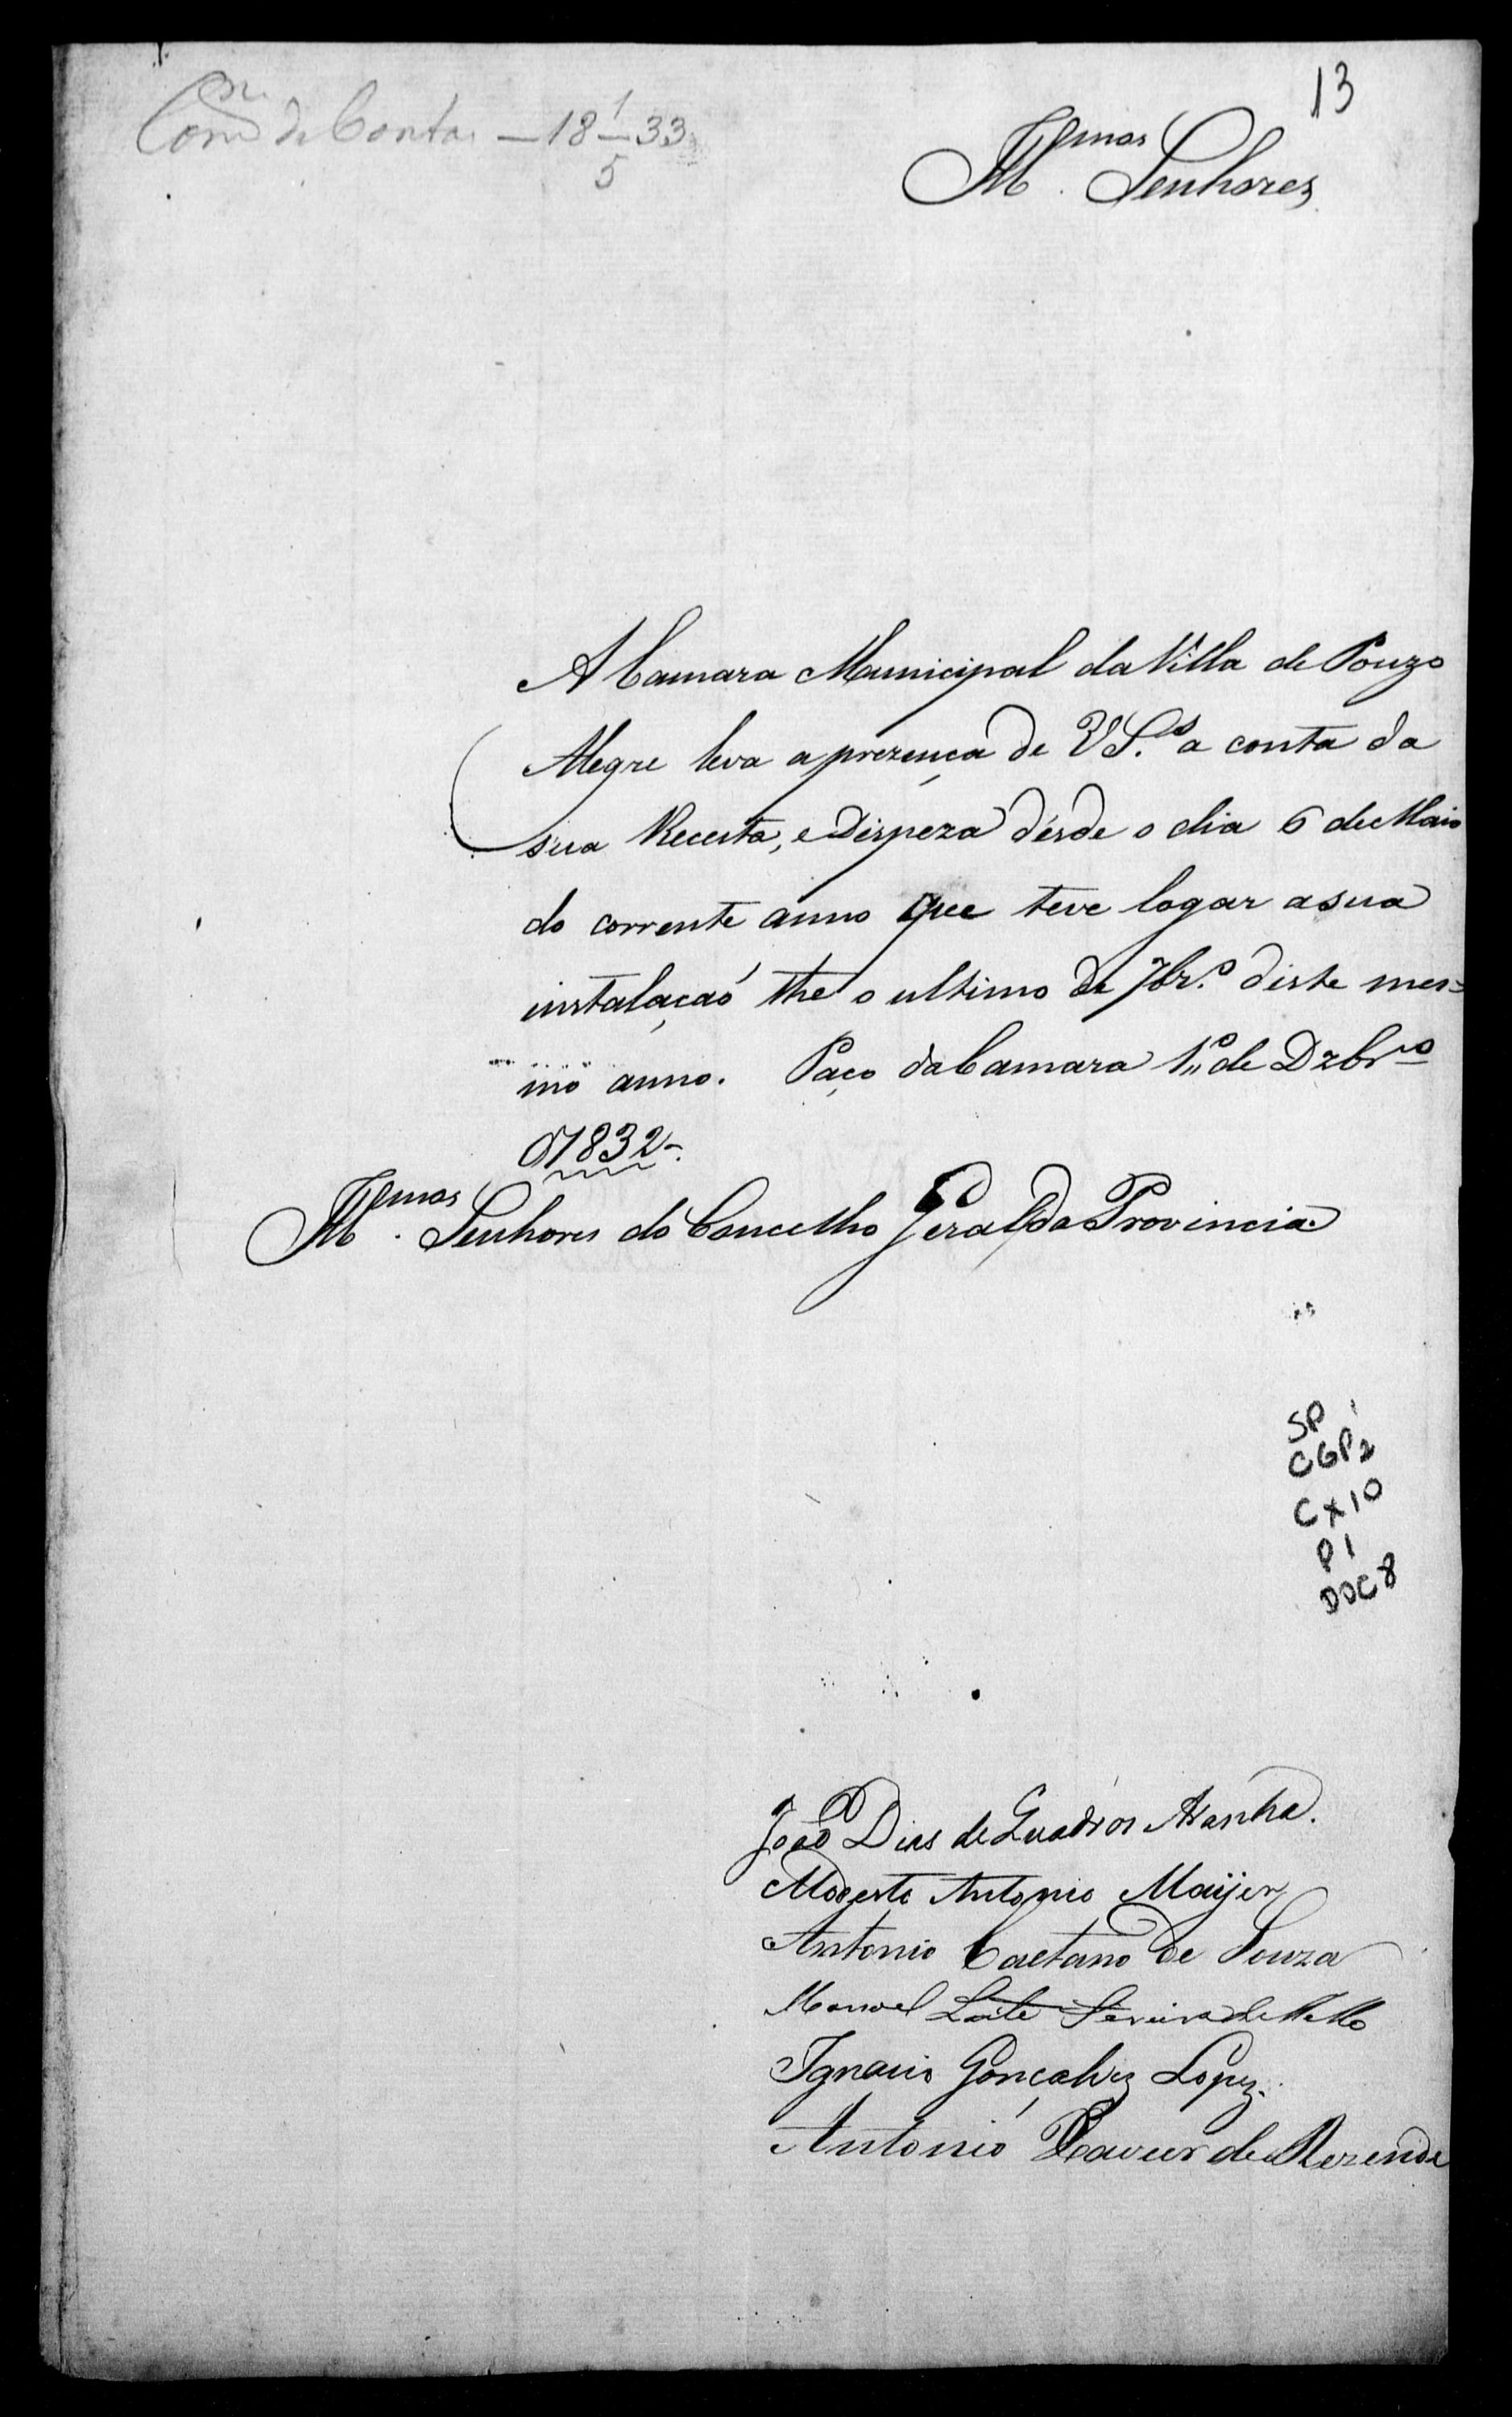 13
Com de Contas - 18 1/5 33
Illmos Senhores
A Camara Municipal da Villa de Pouzo
Alegre leva a prezença de VS.s a conta da
sua Receita, e Dispeza désde o dia 6 de Maio
do corrente anno que teve logar a sua
instalaçaó the o ultimo de 7br.o diste mes=
mo anno. Paço da Camara 1.o de Dzbro
d'1832.
Illmos Senhores do Concelho Geral da Provincia
SP
CGP2
CX10
P1
DOC8
João Dias de Quadros Aranha.
Modesto Antonio Mayer
Antonio Caetano de Souza
Manoel Leite Ferreira de Mello
Ignacio Gonçalvez Lopez.
Antonio Xavier de Rezende